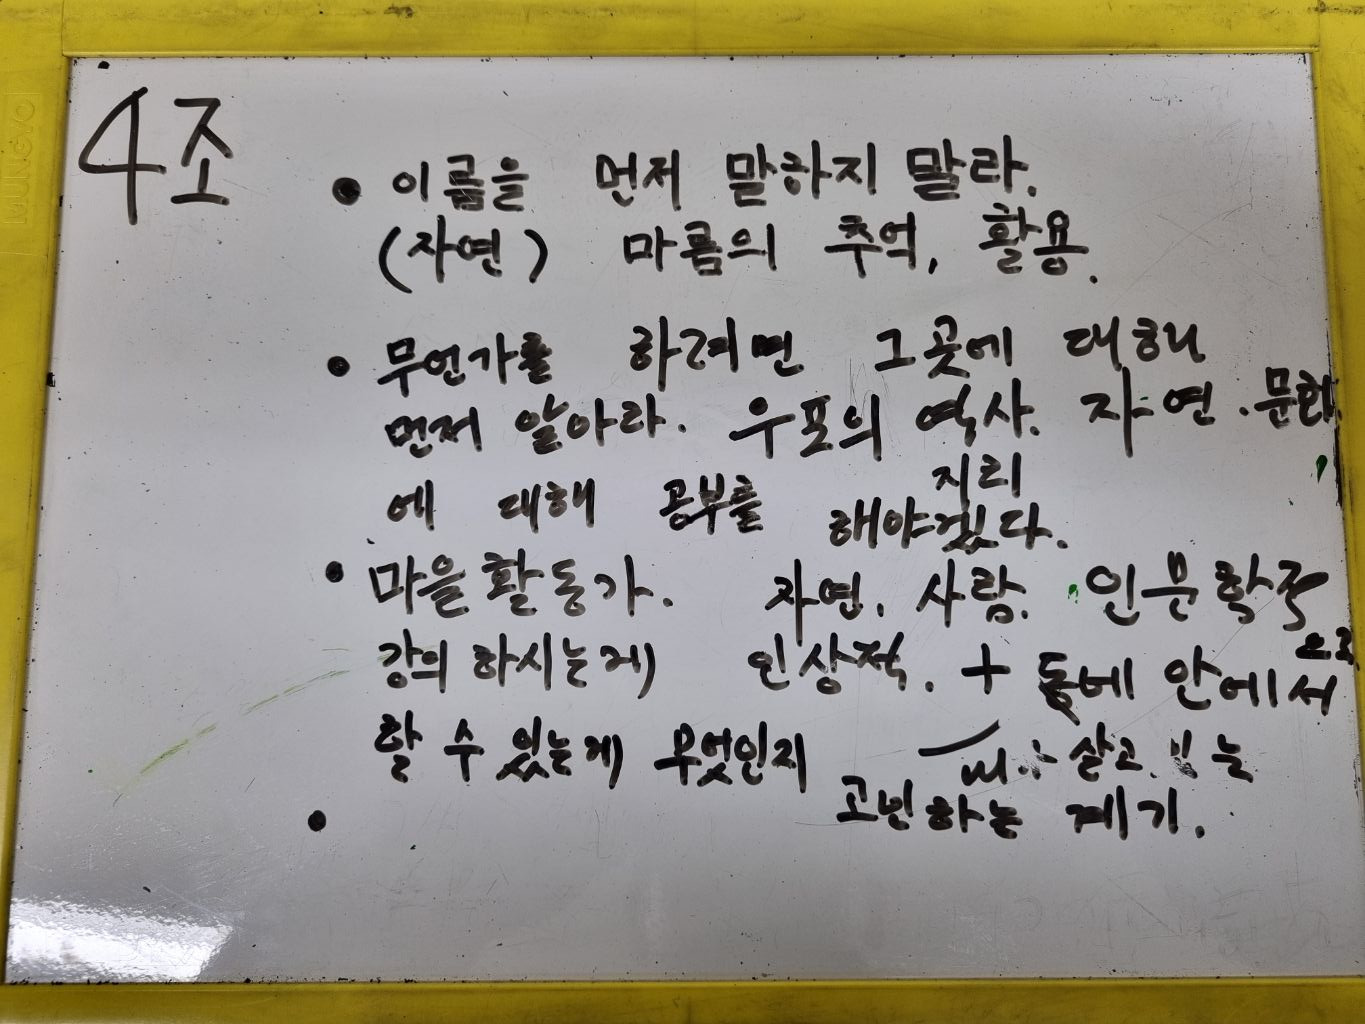 4조
• 이름을 먼저 말하지 말라.
(자연) 마름의 추억, 활용.
• 무언가를 하려면 그곳에 대해
먼저 알아라. 우포의 역사. 자연. 문화.
지리
에 대해 공부를 해야겠다.
• 마을활동가. 자연. 사람. 인문학적
으로
강의 하시는게 인상적. + 동네 안에서
할 수 있는게 무엇인지 살고 는
고민하는 계기.
•
MUNGYO